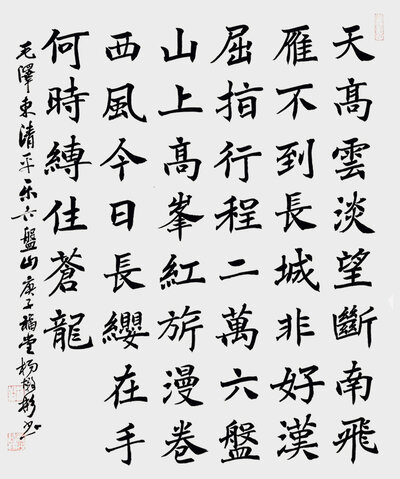 天高雲淡望斷南飛
雁不到長城非好漢
屈指行程二萬六盤
山上高峯紅旂漫卷
西風今日長纓在手
何時縛住蒼龍
毛澤東清平乐六盤山庚子福堂杨彬书